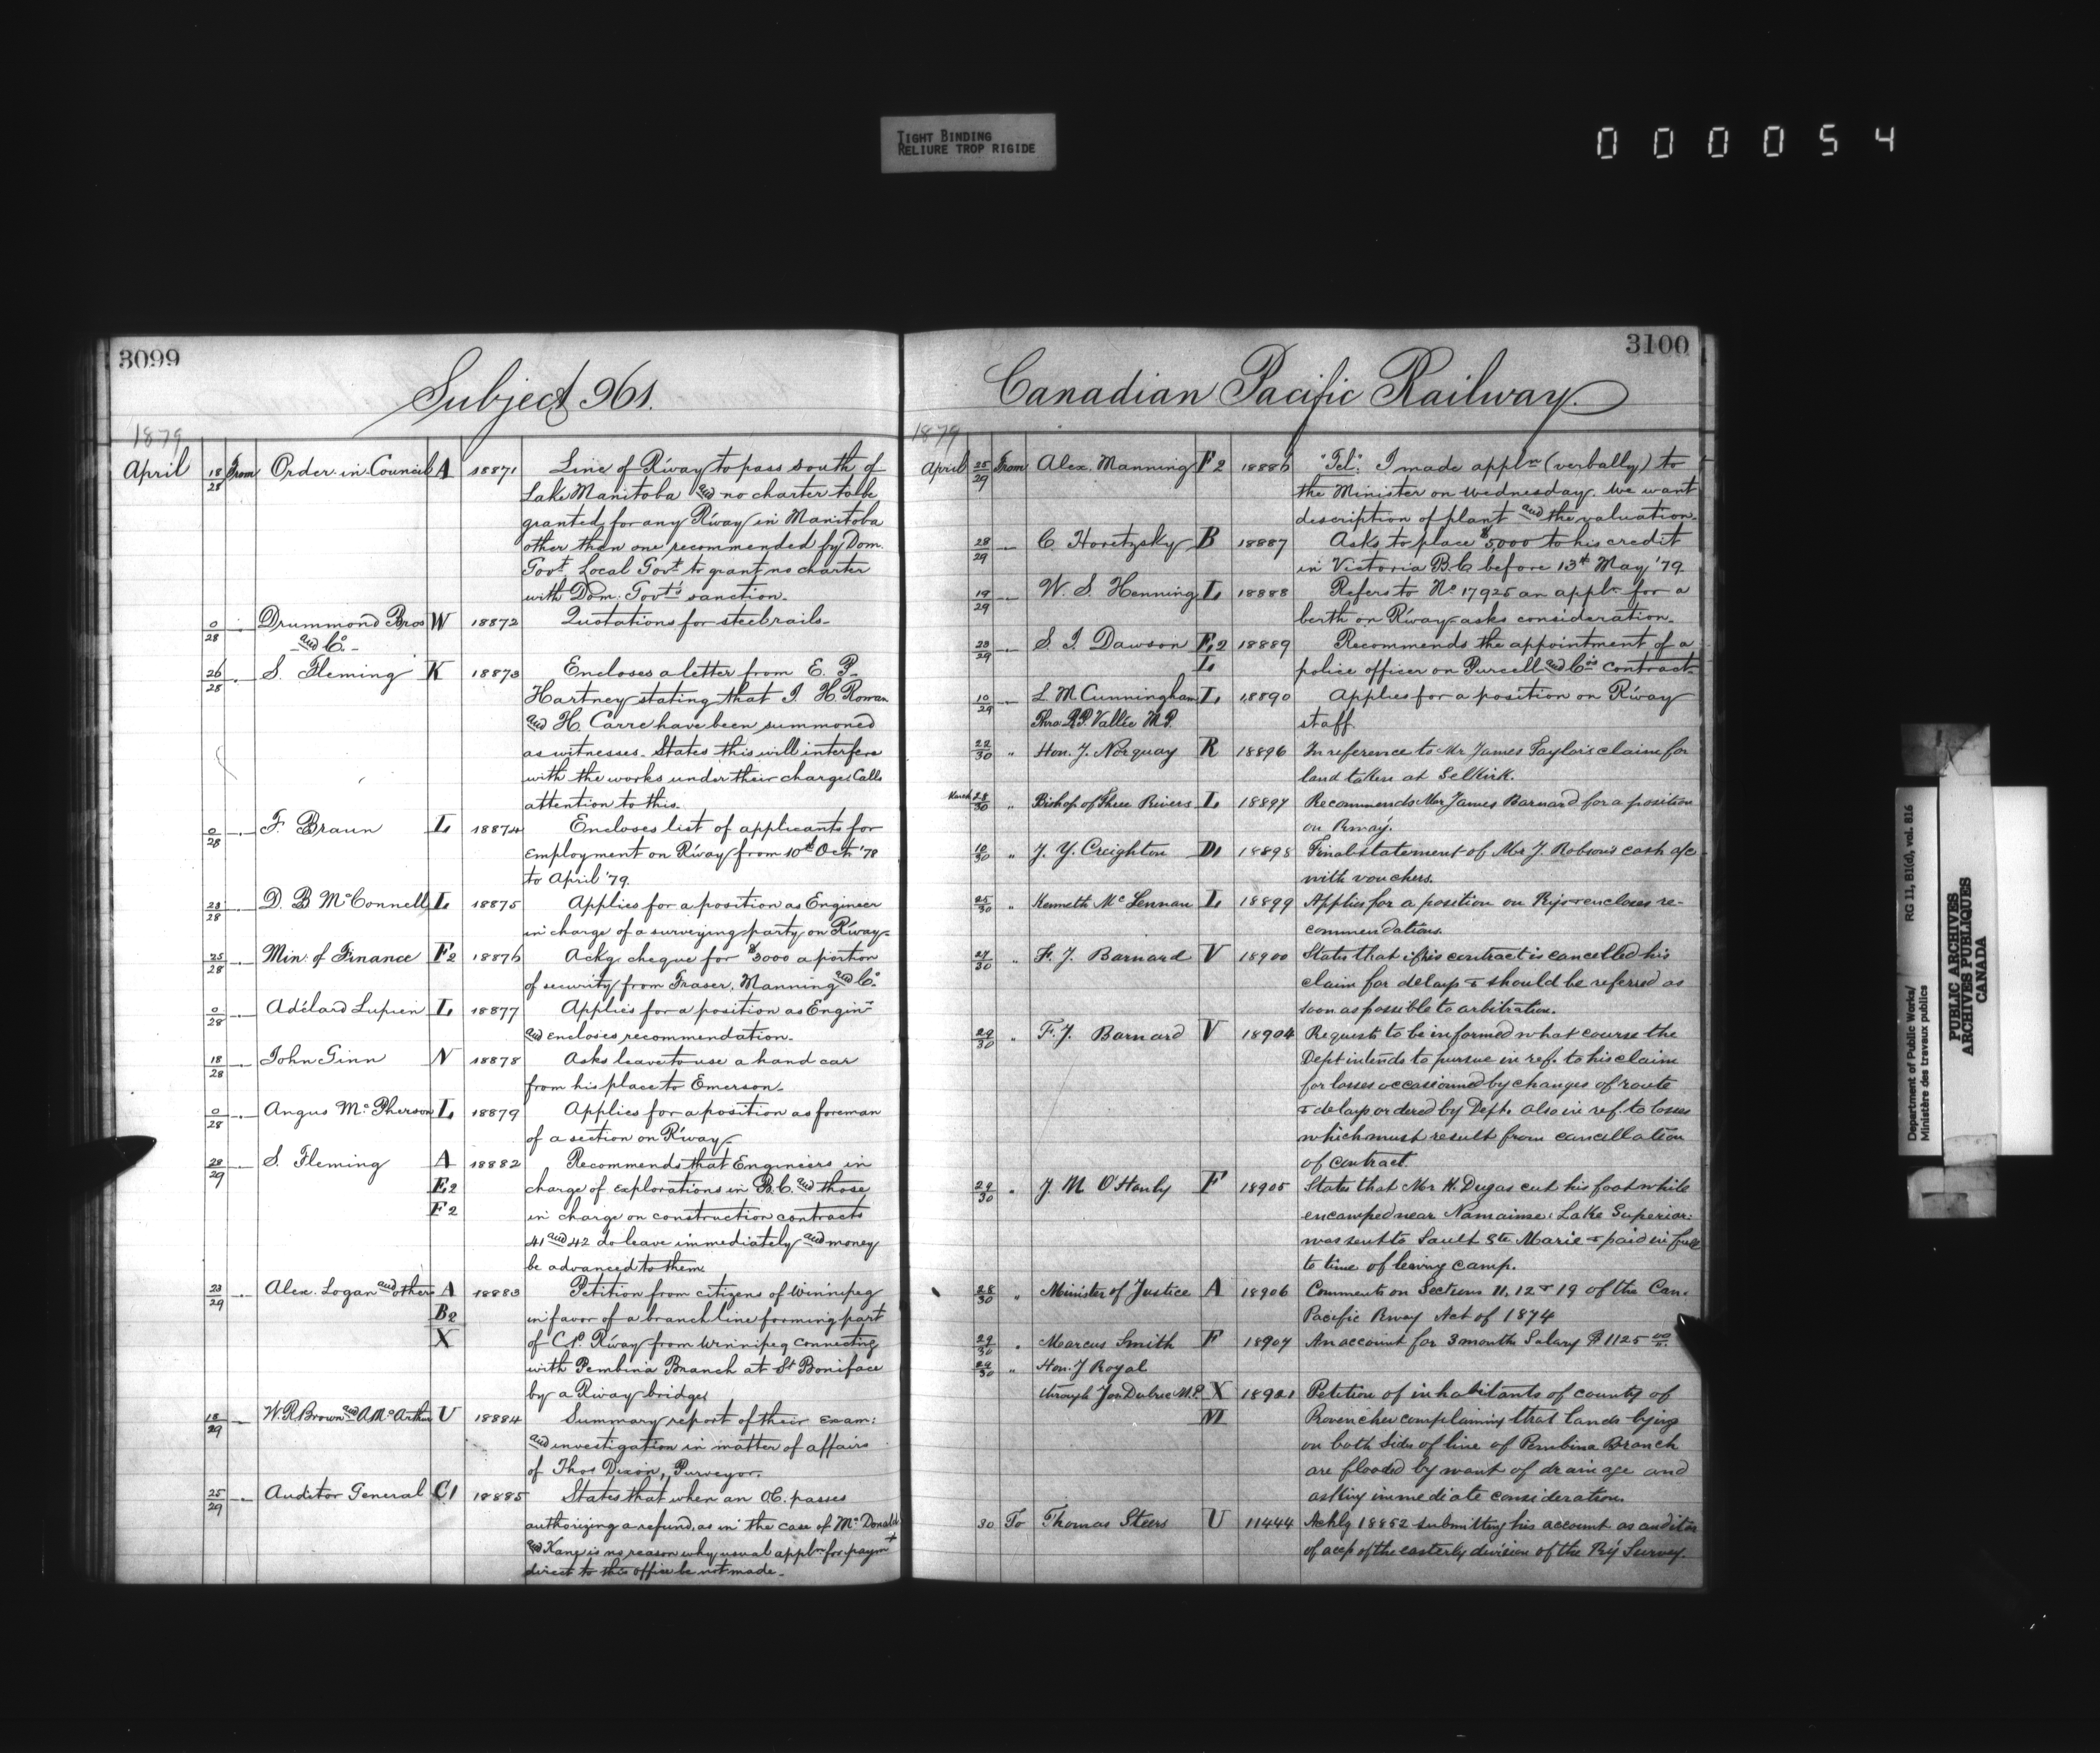 TIGHT BINDING
RELIURE TROP RIGIDE
0 0 0 0 5 4
3099
Subject 961.
1879
April 18/28 From Order-in-Council A 18871 Line of R'way to pass south of
Lake Manitoba and no charter to be
granted for any R'way in Manitoba
other than one recommended by Dom.
Govt. Local Govt. to grant no charter
with Dom: Govt's sanction.
0/28 Drummond Bros W 18872 Quotations for steel rails.
and Co.
26/28 S. Fleming K 18873 Encloses a letter from E. P.
Hartney stating that J. H. Rowan
and H. Carre have been summoned
as witnesses. States this will interfere
with the works under their charge. Calls
attention to this.
0/28 F. Braun L 18874 Encloses list of applicants for
employment on R'way from 10th Oct '78
to April '79.
23/28 D. B. McConnell L 18875 Applies for a position as Engineer
in charge of a surveying party on R'way.
25/28 Min: of Finance F2 18876 Ackg. cheque for $3000 a portion
of security from Fraser, Manning and Co.
0/28 Adélard Lupien L 18877 Applies for a position as Enginr
and encloses recommendation.
18/28 John Ginn N 18878 Asks leave to use a hand car
from his place to Emerson.
0/28 Angus McPherson L 18879 Applies for a position as foreman
of a section on R'way.
28/29 S. Fleming A 18882 Recommends that Engineers in
E2 charge of explorations in B.C. and those
F2 in charge on construction contracts
41 and 42 do leave immediately and money
be advanced to them
23/29 Alex. Logan and others A 18883 Petition from citizens of Winnipeg
B2 in favor of a branch line forming part
X of C.P. R'way from Winnipeg connecting
with Pembina Branch at St Boniface
by a R'way bridge.
18/29 W. R. Brown and A McArthur U 18884 Summary report of their exam:
and investigation in matter of affairs
of Thos Dixon, Purveyor.
25/29 Auditor General C1 18885 States that when an O.C. passes
authorizing a refund, as in the case of McDonald
and Kane is no reason why usual applon for paymt
direct to this office be not made.
3100
Canadian Pacific Railway
1879
April 25/29 From Alex. Manning F2 18886 "Tel". I made appln (verbally) to
the Minister on Wednesday. We want
description of plant and the valuation.
28/29 C. Horetzsky B 18887 Asks to place $5000 to his credit
in Victoria B.C. before 13th May '79
19/29 W. S. Henning L 18888 Refers to No 17925 an appln for a
berth on R'way asks consideration.
23/29 S. J. Dawson E2 18889 Recommends the appointment of a
L police officer on Purcell and Co's contract.
10/29 L. M Cunningham L 18890 Applies for a position on R'way
Thro R.P. Vallée M.P. staff
22/30 " Hon. J. Norquay R 18896 In reference to Mr James Taylor's claim for
land taken at Selkirk.
March 28/30 " Bishop of Three Rivers L 18897 Recommends Mr James Barnard for a position
on Rway.
10/30 " J. Y. Creighton D1 18898 Final statement of Mr J. Robson's cash a/c
with vouchers.
25/30 " Kenneth McLennan L 18899 Applies for a position on Ry & encloses re-
commendations.
27/30 " F. J. Barnard V 18900 States that if his contract is cancelled his
claim for delays & should be referred as
soon as possible to arbitration.
29/30 " F. J. Barnard V 18904 Requests to be informed what course the
Dept intends to pursue in ref. to his claim
for losses occasioned by changes of route
& delays ordered by Dept. also in ref. to losses
which must result from cancellation
of contract.
29/30 " J. M O'Hanly F 18905 States that Mr H. Dugas cut his foot while
encamped near Namainse: Lake Superior:
was sent to Sault Ste Marie & paid in full
to time of leaving camp.
28/30 " Minister of Justice A 18906 Comments on Sections 11, 12 & 19 of the Can.
Pacific Rway Act of 1874
29/30 " Marcus Smith F 18907 An account for 3 months Salary $1125.00
29/30 " Hon. J Royal
through Jos Dubuc M.P. X 18921 Petition of inhabitants of county of
M Provencher complaining that lands lying
on both sides of line of Pembina Branch
are flooded by want of drainage and
asking immediate consideration.
30 To Thomas Steers U 11444 Ackg 18852 submitting his account as auditor
of accts of the easterly division of the Ry Survey.
Department of Public Works/ RG 11, B1(d), vol. 816
Ministère des travaux publics
PUBLIC ARCHIVES
ARCHIVES PUBLIQUES
CANADA